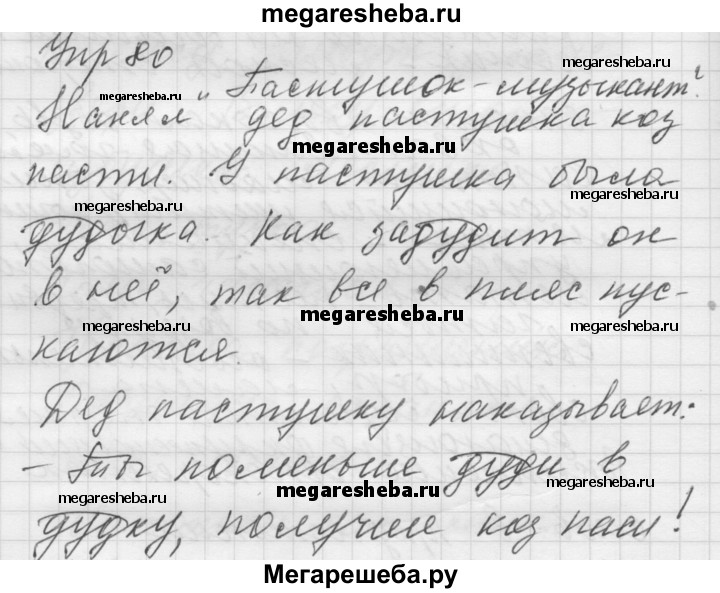 megaresheba.ru
Упр 80
megaresheba.ru
megaresheba.ru
"Пастушок-музыкант".
Нанял дед пастушка коз
megaresheba.ru
megaresheba.ru
пасти. У пастушка была
megaresheba.ru
дудочка. Как задудит он
в неё, так все в пляс пус-
megaresheba.ru
megaresheba.ru
megaresheba.ru
каются.
Дед пастушку наказывает:
- Ты поменьше дуди в
megaresheba.ru
megaresheba.ru
megaresheba.ru
дудку, получше коз паси!
Мегарешеба.ру